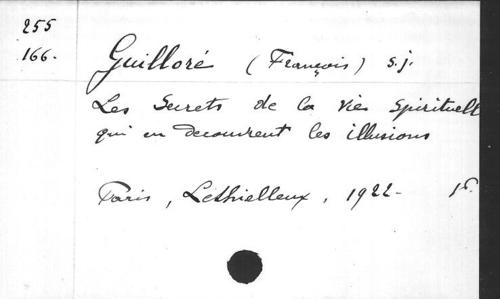 255
166.
Guilloré (François) s.j.
Les Secrets de la vie spirituelle
qui en decouvrent les illusions
Paris, Lethielleux, 1922-